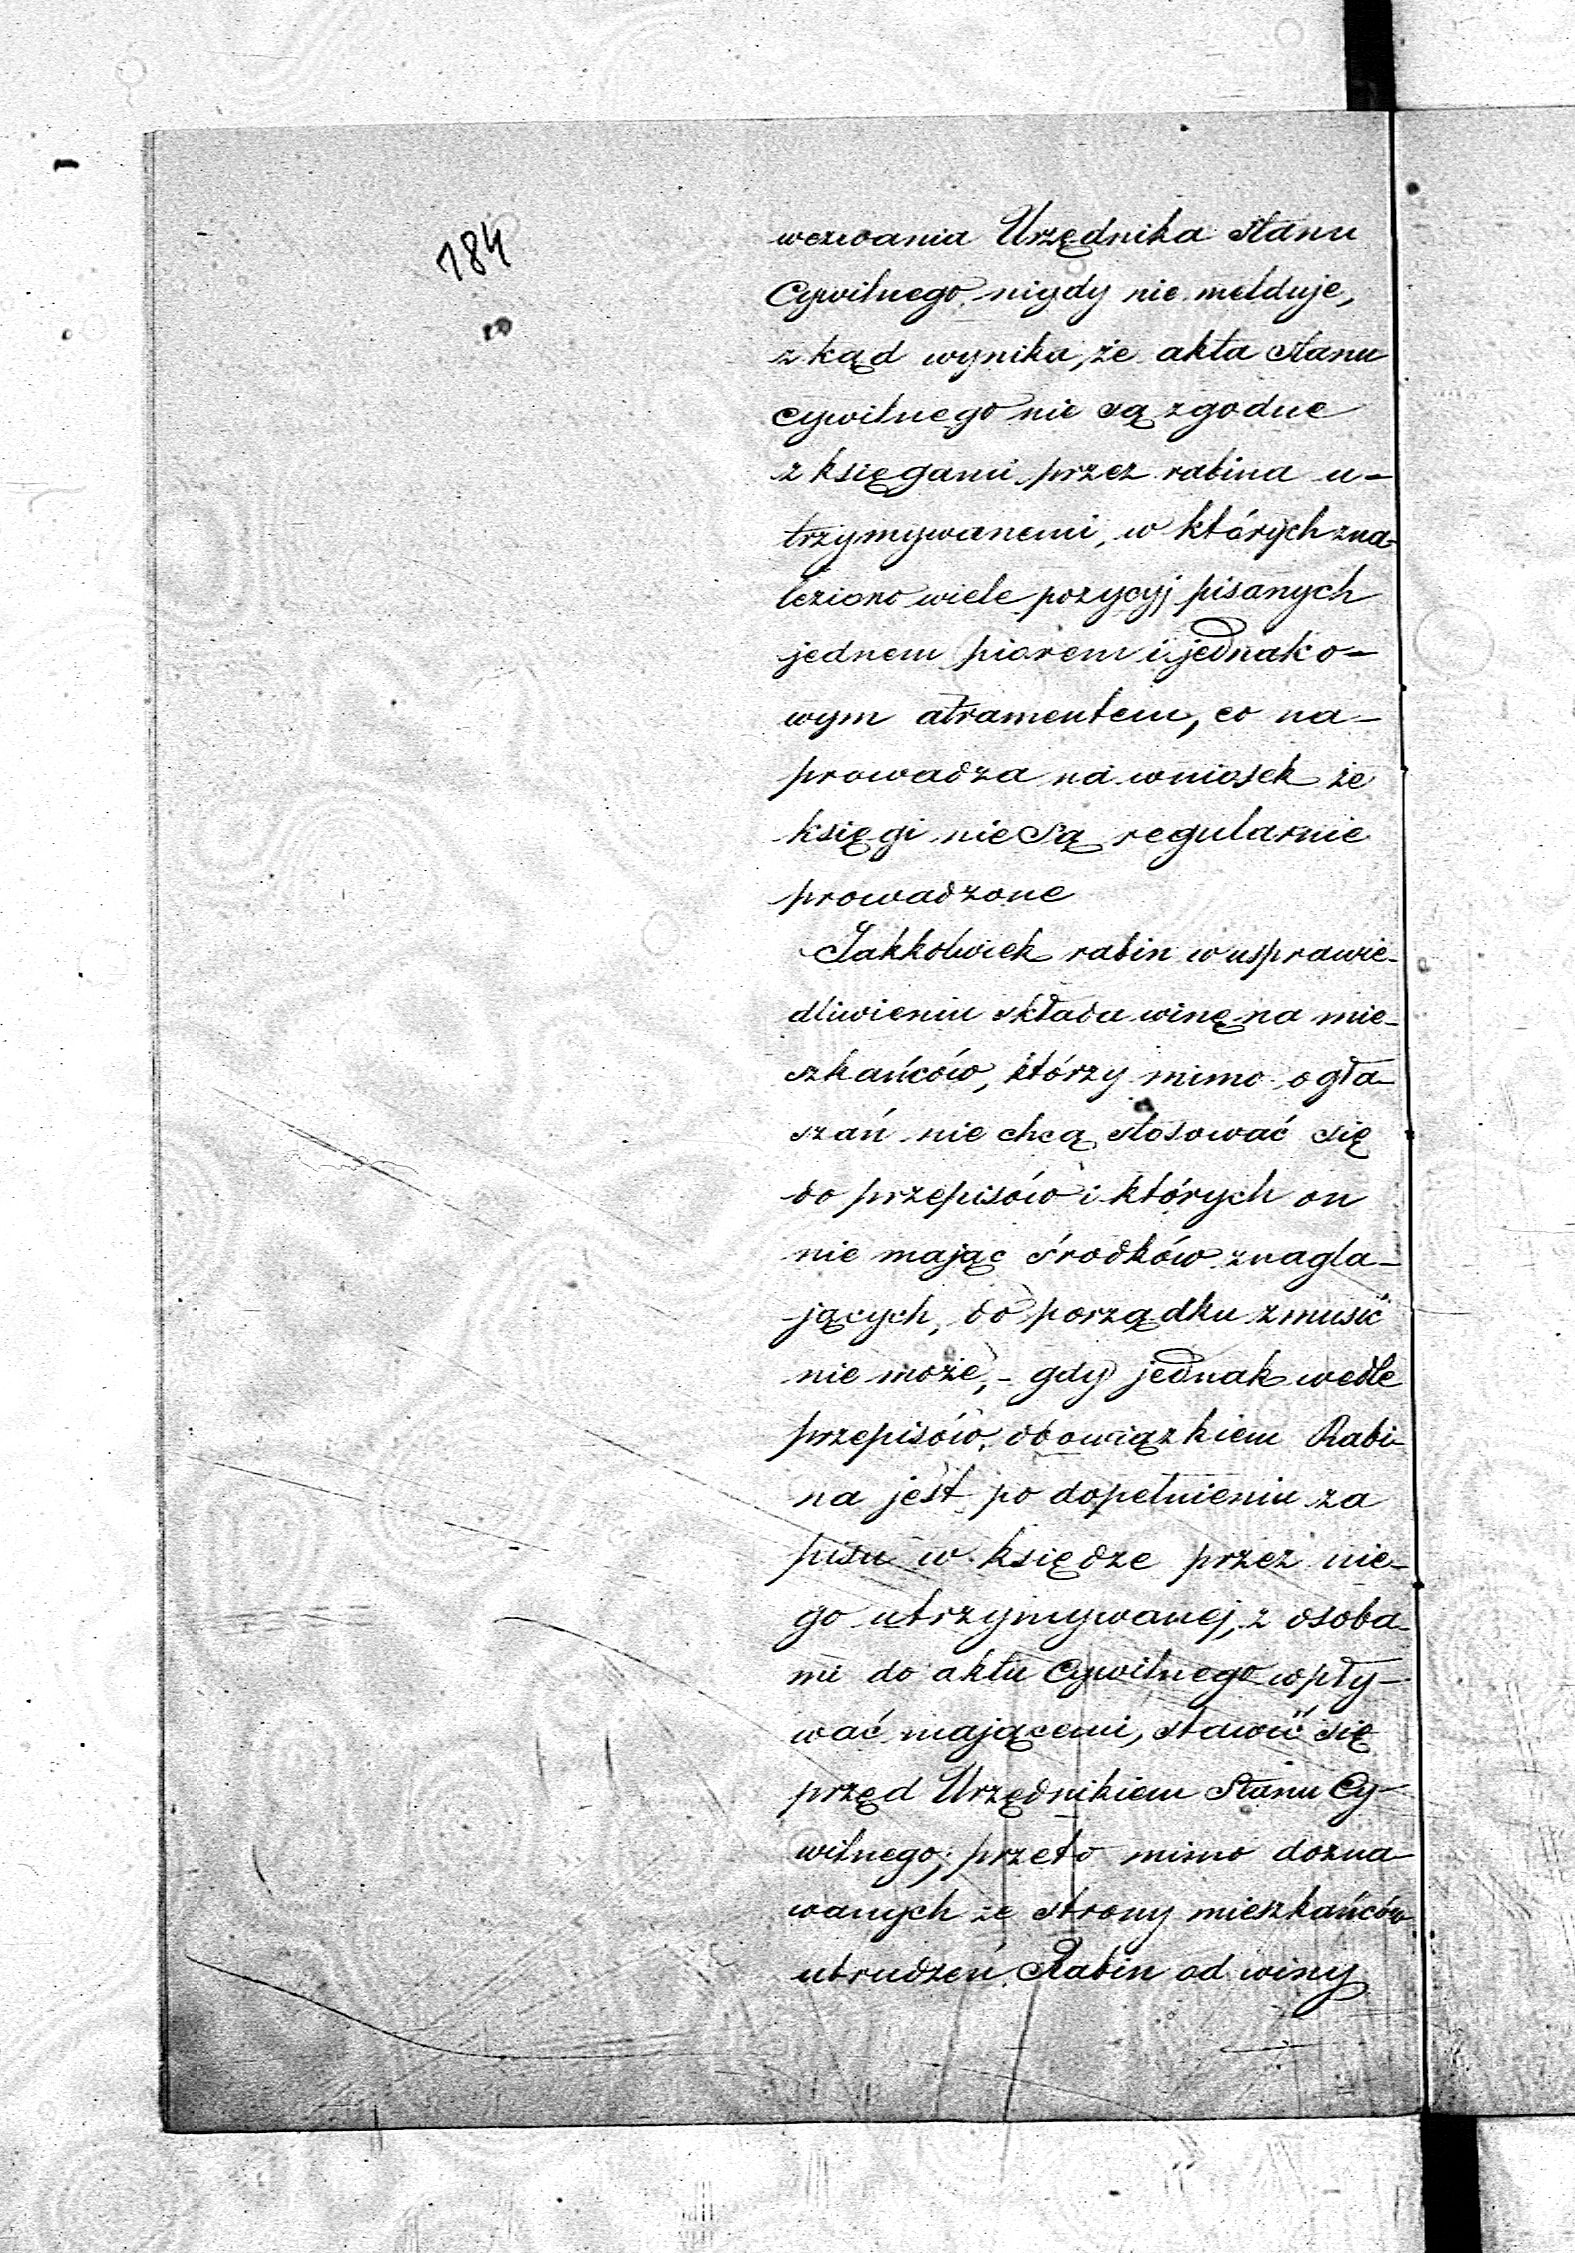 184
wezwania Urzędnika Stanu
Cywilnego nigdy nie melduje,
zkąd wynika, że akta Stanu
cywilnego nie są zgodne
z księgami przez rabina u-
trzymywanemi, w których zna-
leziono wiele pozycyj pisanych
jednem piórem i jednako-
wym atramentem, co na-
prowadza na wniosek że
księgi nie są regularnie
prowadzone
Jakkolwiek rabin w usprawie-
dliwieniu składa winę na mie-
szkańców, którzy mimo ogła-
szań nie chcą stosować się
do przepisów i których on
nie mając środków znagla-
jących, do porządku zmusić
nie może, - gdy jednak wedle
przepisów, obowiązkiem Rabi-
na jest po dopełnieniu za
pisu w księdze przez nie-
go utrzymywanej, z osoba-
mi do aktu Cywilnego wpły-
wać mającemi, stawić się
przed Urzędnikiem Stanu Cy-
wilnego; przeto mimo dozna-
wanych ze strony mieszkańców
utrudzeń Rabin od winy